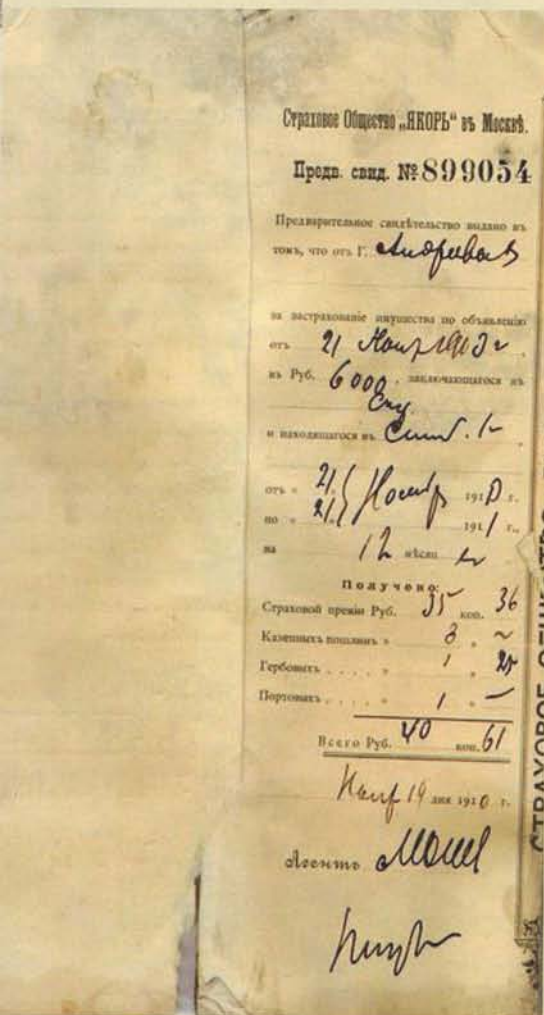 Страховое Общество „ЯКОРЬ“ въ Москвѣ.
Предв. свид. № 899054
Предварительное свидѣтельство выдано въ
томъ, что отъ Г. Андреева
за застрахованіе имущества по объявленію
отъ 21 1910 г
въ Руб. 6000, заключающагося въ
и находящагося въ
отъ « 21 Ноября 1910 г.
по « 21 1911 г.,
на 12 мѣсяц
Получено:
Страховой преміи Руб. 35 коп. 36
Казенныхъ пошлинъ » 3 „ ~
Гербовыхъ . . . . » 1 „ 25
Портовыхъ . . . . » 1 „ —
Всего Руб. 40 коп. 61
19 дня 1910 г.
Агентъ
СТРАХОВОЕ ОБЩЕСТВО